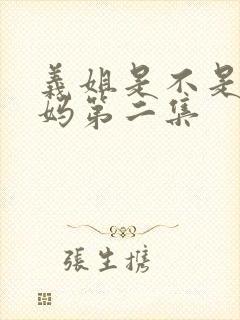 義姐是不是
妈第二集
張生携